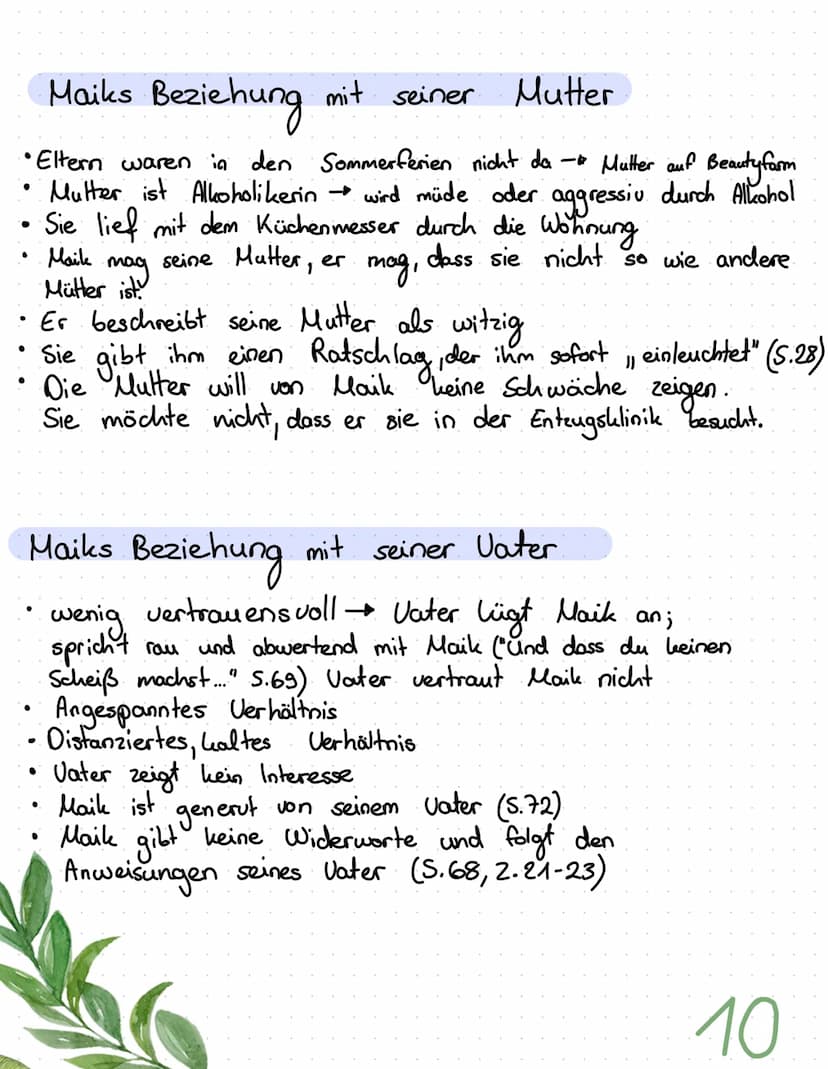 Maiks Beziehung mit seiner Mutter
• Eltern waren in den Sommerferien nicht da → Mutter auf Beautyfarm
• Mutter ist Alkoholikerin → wird müde oder aggressiv durch Alkohol
• Sie lief mit dem Küchenmesser durch die Wohnung
• Maik mag seine Mutter, er mag, dass sie nicht so wie andere
Mütter ist.
• Er beschreibt seine Mutter als witzig
• Sie gibt ihm einen Ratschlag, der ihm sofort „einleuchtet" (S.28)
• Die Mutter will von Maik keine Schwäche zeigen.
Sie möchte nicht, dass er sie in der Entzugsklinik besucht.
Maiks Beziehung mit seiner Vater
• wenig vertrauensvoll → Vater lügt Maik an;
spricht rau und abwertend mit Maik ("Und dass du keinen
Scheiß machst..." S.69) Vater vertraut Maik nicht
• Angespanntes Verhältnis
• Distanziertes, kaltes Verhältnis
• Vater zeigt kein Interesse
• Maik ist genervt von seinem Vater (S.72)
• Maik gibt keine Widerworte und folgt den
Anweisungen seines Vater (S.68, Z.21-23)
10